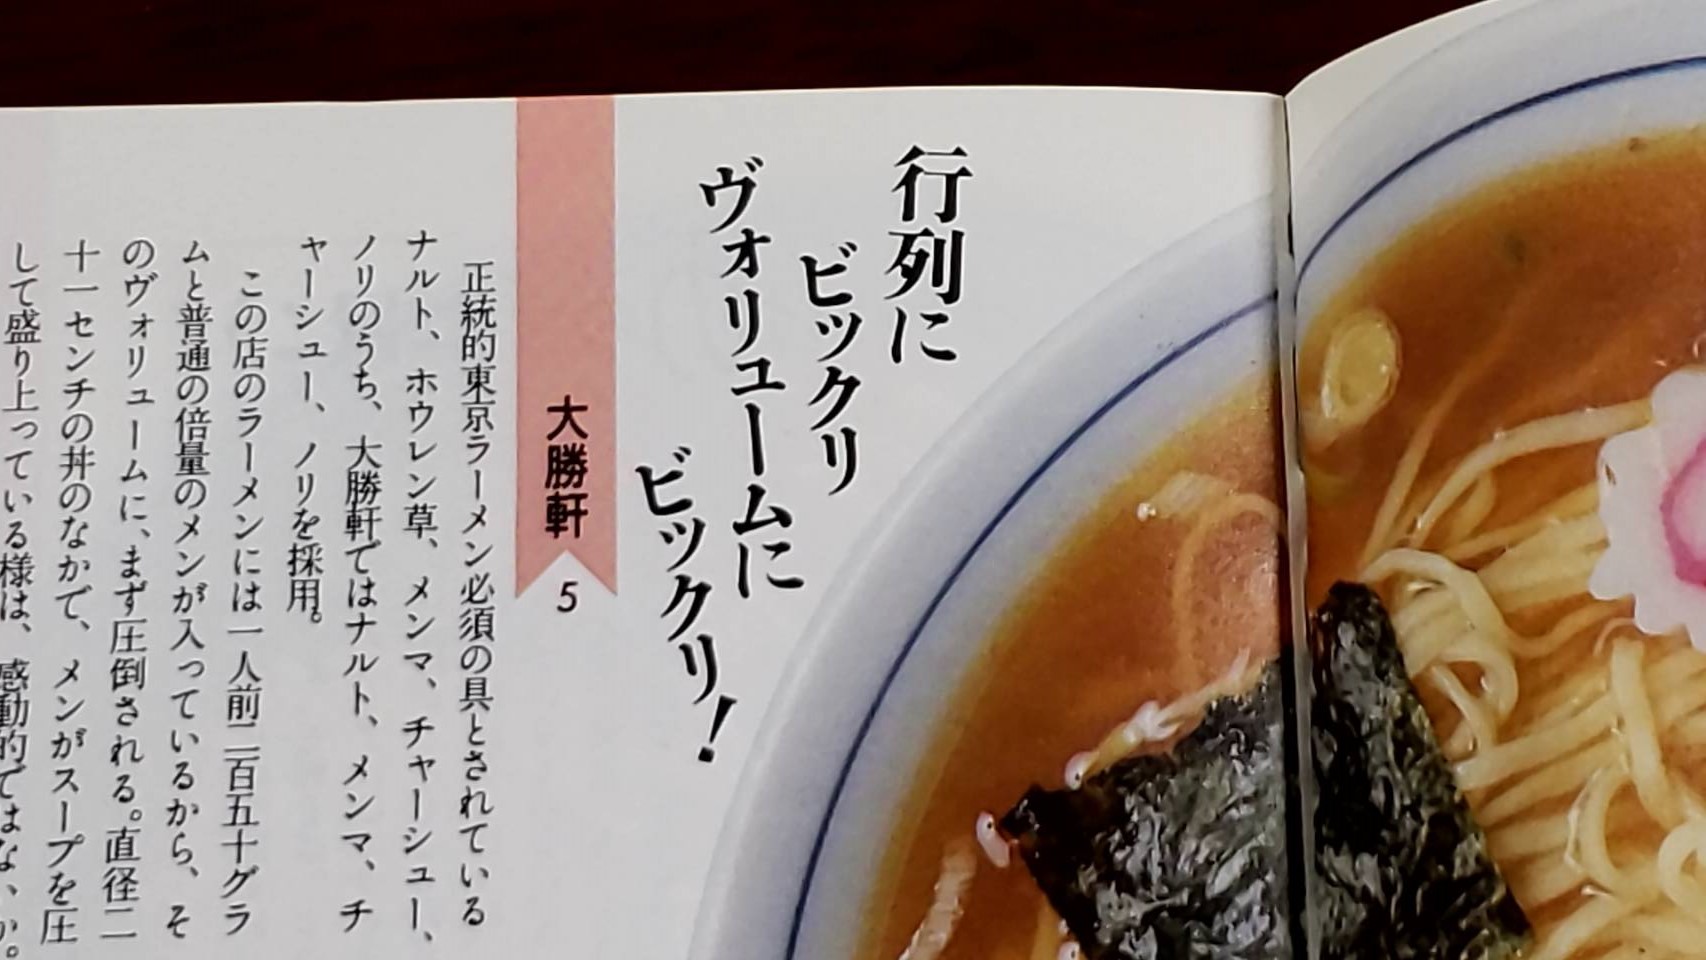 行列に
ビックリ
ヴォリュームに
ビックリ!
大勝軒
5
正統的東京ラーメン必須の具とされている
ナルト、ホウレン草、メンマ、チャーシュー、
ノリのうち、大勝軒ではナルト、メンマ、チ
ャーシュー、ノリを採用。
この店のラーメンには一人前二百五十グラ
ムと普通の倍量のメンが入っているから、そ
のヴォリュームに、まず圧倒される。直径二
十一センチの丼のなかで、メンがスープを圧
して盛り上っている様は、感動的ではないか。